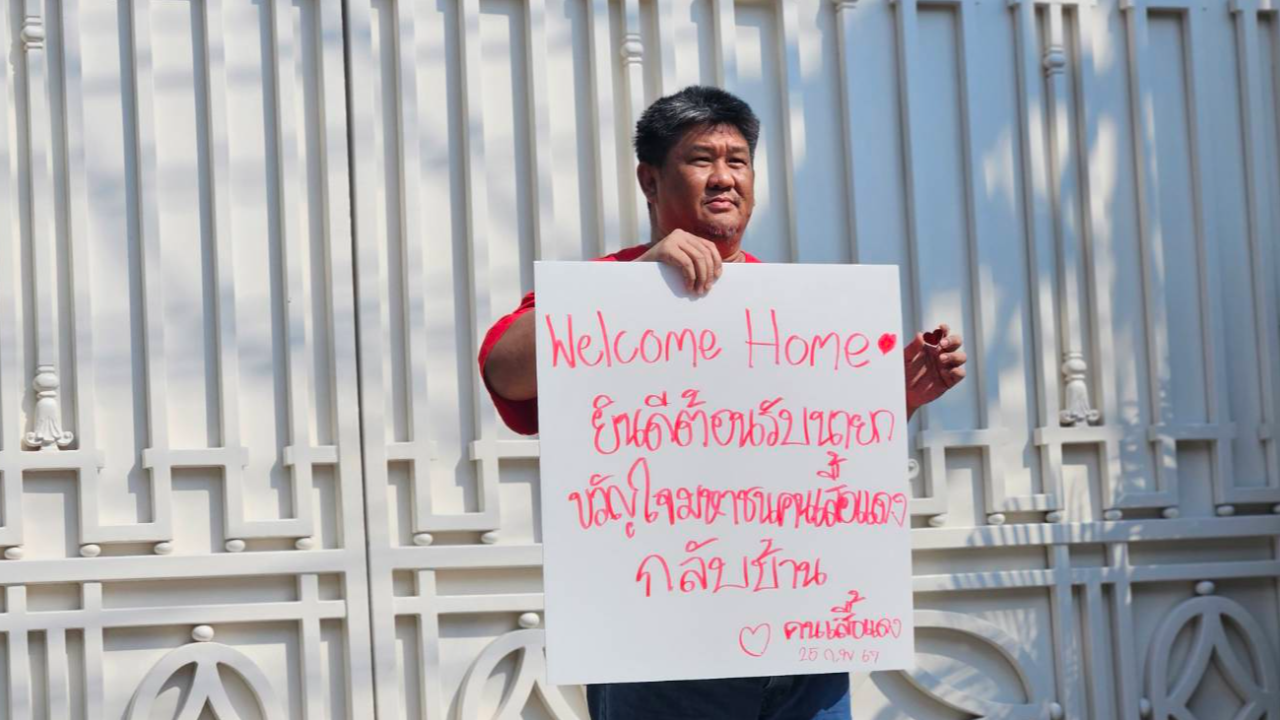 Welcome Home
ยินดีต้อนรับนายก
ขวัญใจมหาชนคนเสื้อแดง
กลับบ้าน
คนเสื้อแดง
25 ก.พ 67